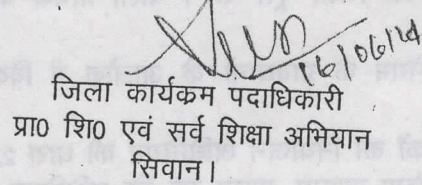 16/06/14
जिला कार्यकम पदाधिकारी
प्रा0 शि0 एवं सर्व शिक्षा अभियान
सिवान।